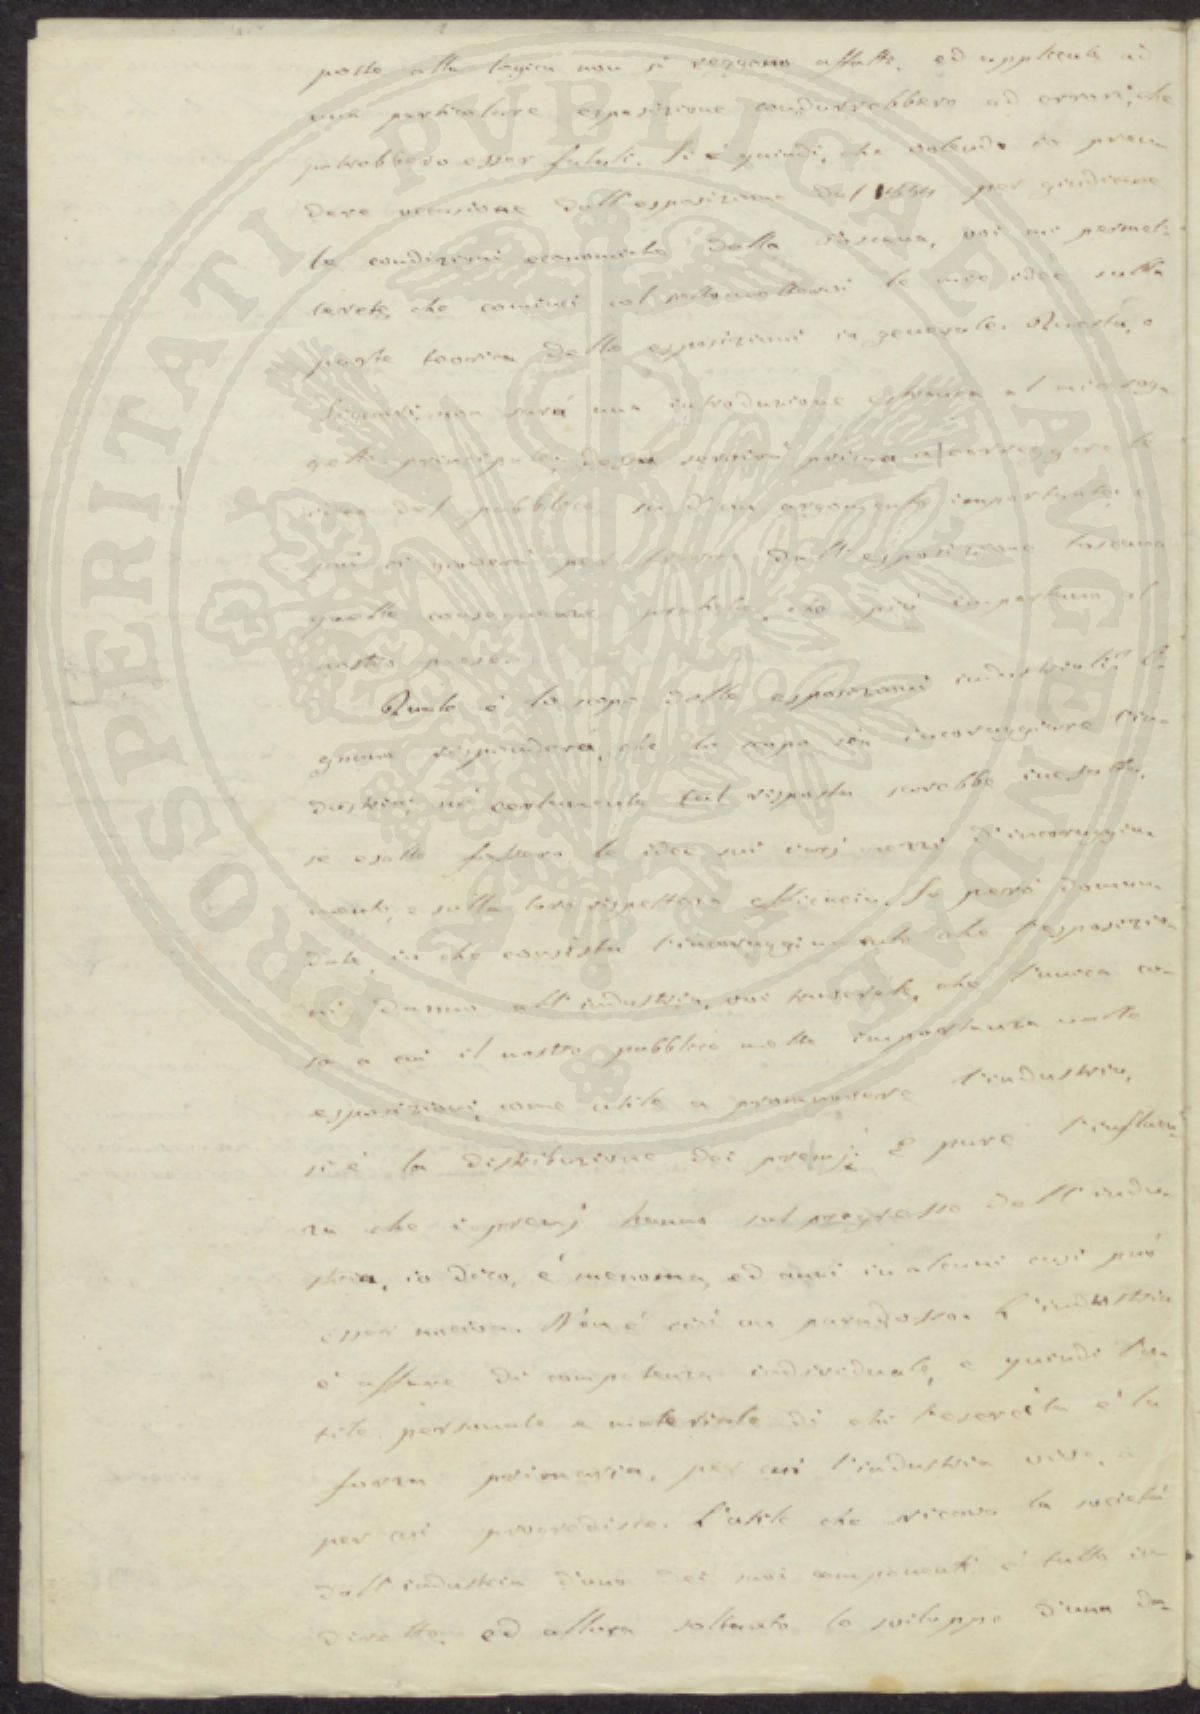 poste alla logica non si reggono affatto, ed applicate ad
una particolare esposizione condurrebbero ad errori, che
potrebbero esser fatali. Si è quindi, che volendo io pren-
dere occasione dall'esposizione del 1854 per giudicare
le condizioni economiche della Toscana, voi mi permet-
terete, che cominci col sottomettervi le mie idee sulla
parte teorica delle esposizioni in generale. Questa, o
Signori, non sarà una introduzione estranea al mio sog-
getto principale; dessa servirà prima a correggere le
idee del pubblico su d'un argomento importante, e
poi ci gioverà per trarre dall'esposizione toscana
quelle conseguenze pratiche, che più importano al
nostro paese.
Quale è lo scopo delle esposizioni industriali? O-
gnuno risponderà, che lo scopo sia incoraggiare l'in-
dustria; nè certamente tal risposta sarebbe inesatta,
se esatte fossero le idee sui varj mezzi d'incoraggia-
mento, e sulla loro rispettiva efficacia. Se però doman-
date, in che consista l'incoraggiamento che l'esposizio-
ni danno all'industria, voi troverete, che l'unica co-
sa a cui il nostro pubblico mette importanza nelle
esposizioni, come utile a promuovere l'industria,
si è la distribuzione dei premj. E pure l'influen-
za che i premj hanno sul progresso dell'indu-
stria, io dico, è menoma, ed anzi in alcuni casi può
esser nociva. Non è ciò un paradosso. L'industria
è affare di competenza individuale, e quindi l'u-
tile personale e materiale di chi l'esercita è la
forza primaria, per cui l'industria vive, e
per cui progredisce. L'utile che ricava la società
dall'industria d'uno dei suoi componenti è tutto in-
diretto, ed allora soltanto lo sviluppo d'una da-
PROSPERITATI PVBLICAE AVGENDAE